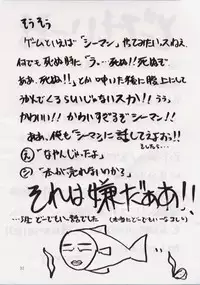 そうそう
ゲームといえば「シーマン」やってみたいスねえ
何でも死ぬ時に「う。…死ぬ!! 死ぬぞ
ああ、死ぬ!!」とか呟いた後に腹上にして
うかんでくるらしいじゃないスか!! うぅ、
かわいい!! かわいすぎるぞシーマン!!
ああ、俺も「シーマン」に話してえよおぅ!!
としたら…
え「なやんじゃったよ」
シ「本が売れないのかる」
それは嫌だああ!!
…とどーでもいい話でした(本当にどーでもいーなコレ)